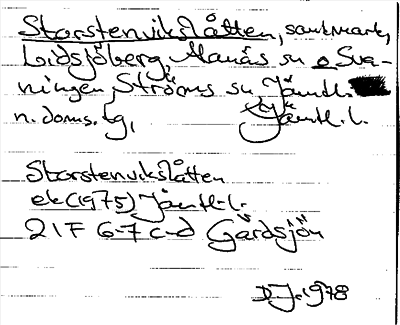 Storstenvikslåtten, sankmark,
Lidsjöberg, Alanäs sn o Sva-
ningen, Ströms sn, Jämtl.
n. doms.tg, Jämtl. l.
Storstenvikslåtten
ek (1975) Jämtl. l.
21F 6-7 c-d Gärdsjön
D.J. 1978